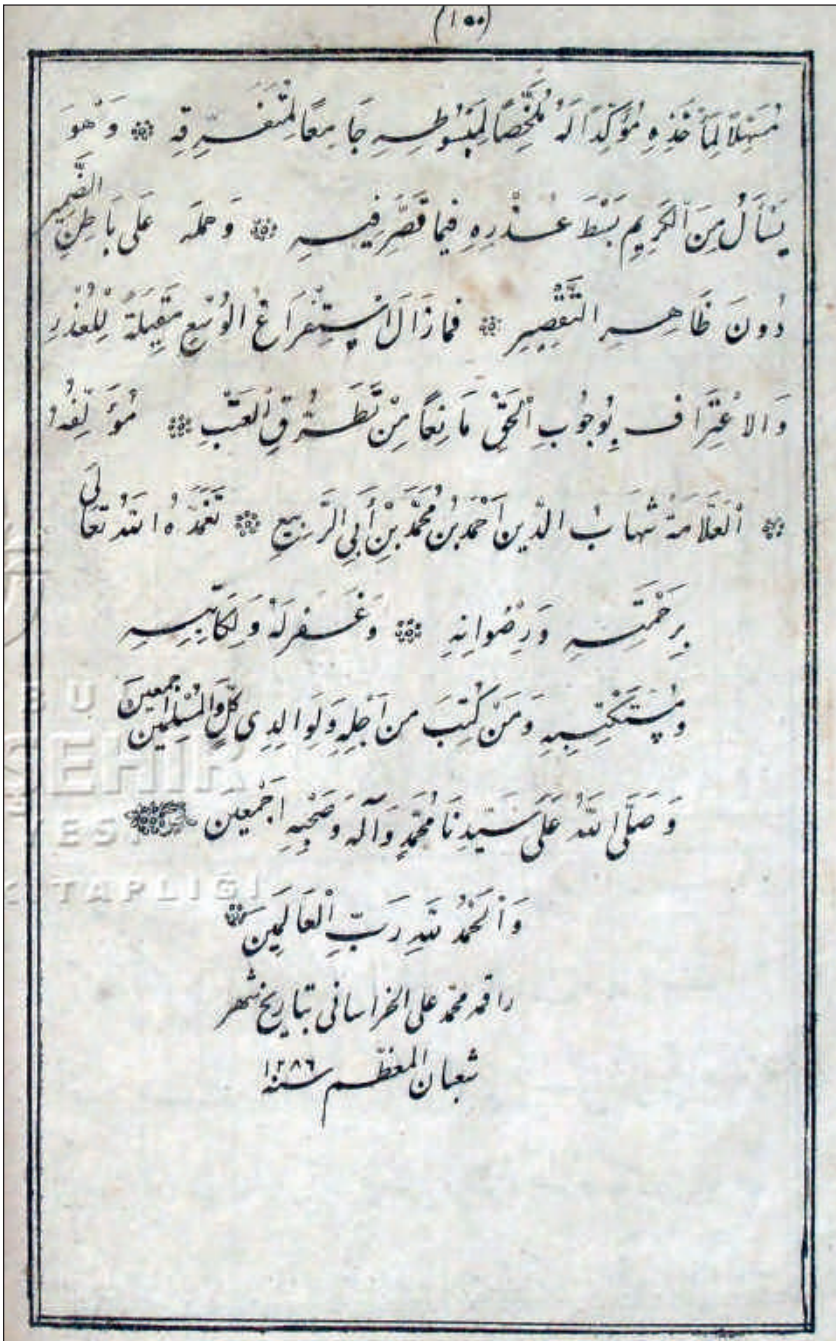 (١٥٠)
مُسَهِّلًا لِمَأْخَذِهِ مُؤَكِّدًا لَهُ مُلَخِّصًا لِمَبْسُوطِهِ جَامِعًا لِمُتَفَرِّقِهِ ۞ وَهُوَ
يَسْأَلُ مِنَ الْكَرِيمِ بَسْطَ عُذْرِهِ فِيمَا قَصَّرَ فِيهِ ۞ وَحَمْلَهُ عَلَى بَاطِنِ الضَّمِيرِ
دُونَ ظَاهِرِ التَّقْصِيرِ ۞ فَمَا زَالَ اسْتِفْرَاغُ الْوُسْعِ مَقِيلَةً لِلْعُذْرِ
وَالاعْتِرَافُ بِوُجُوبِ الْحَقِّ مَانِعًا مِنْ تَطَرُّقِ الْعَتْبِ ۞ مُؤَلِّفُهُ
۞ الْعَلَّامَةُ شِهَابُ الدِّينِ أَحْمَدُ بْنُ مُحَمَّدِ بْنِ أَبِي الرَّبِيعِ ۞ تَغَمَّدَهُ اللهُ تَعَالَى
بِرَحْمَتِهِ وَرِضْوَانِهِ ۞ وَغَفَرَ لَهُ وَلِكَاتِبِهِ
وَمُسْتَكْتِبِهِ وَمَنْ كُتِبَ مِنْ أَجْلِهِ وَلِوَالِدِي كُلٍّ وَالْمُسْلِمِينَ أَجْمَعِينَ
وَصَلَّى اللهُ عَلَى سَيِّدِنَا مُحَمَّدٍ وَآلِهِ وَصَحْبِهِ أَجْمَعِينَ
وَالْحَمْدُ للهِ رَبِّ الْعَالَمِينَ ۞
راقمه محمد علي الخراساني بتاريخ شهر
شعبان المعظم سنة ١٢٨٦